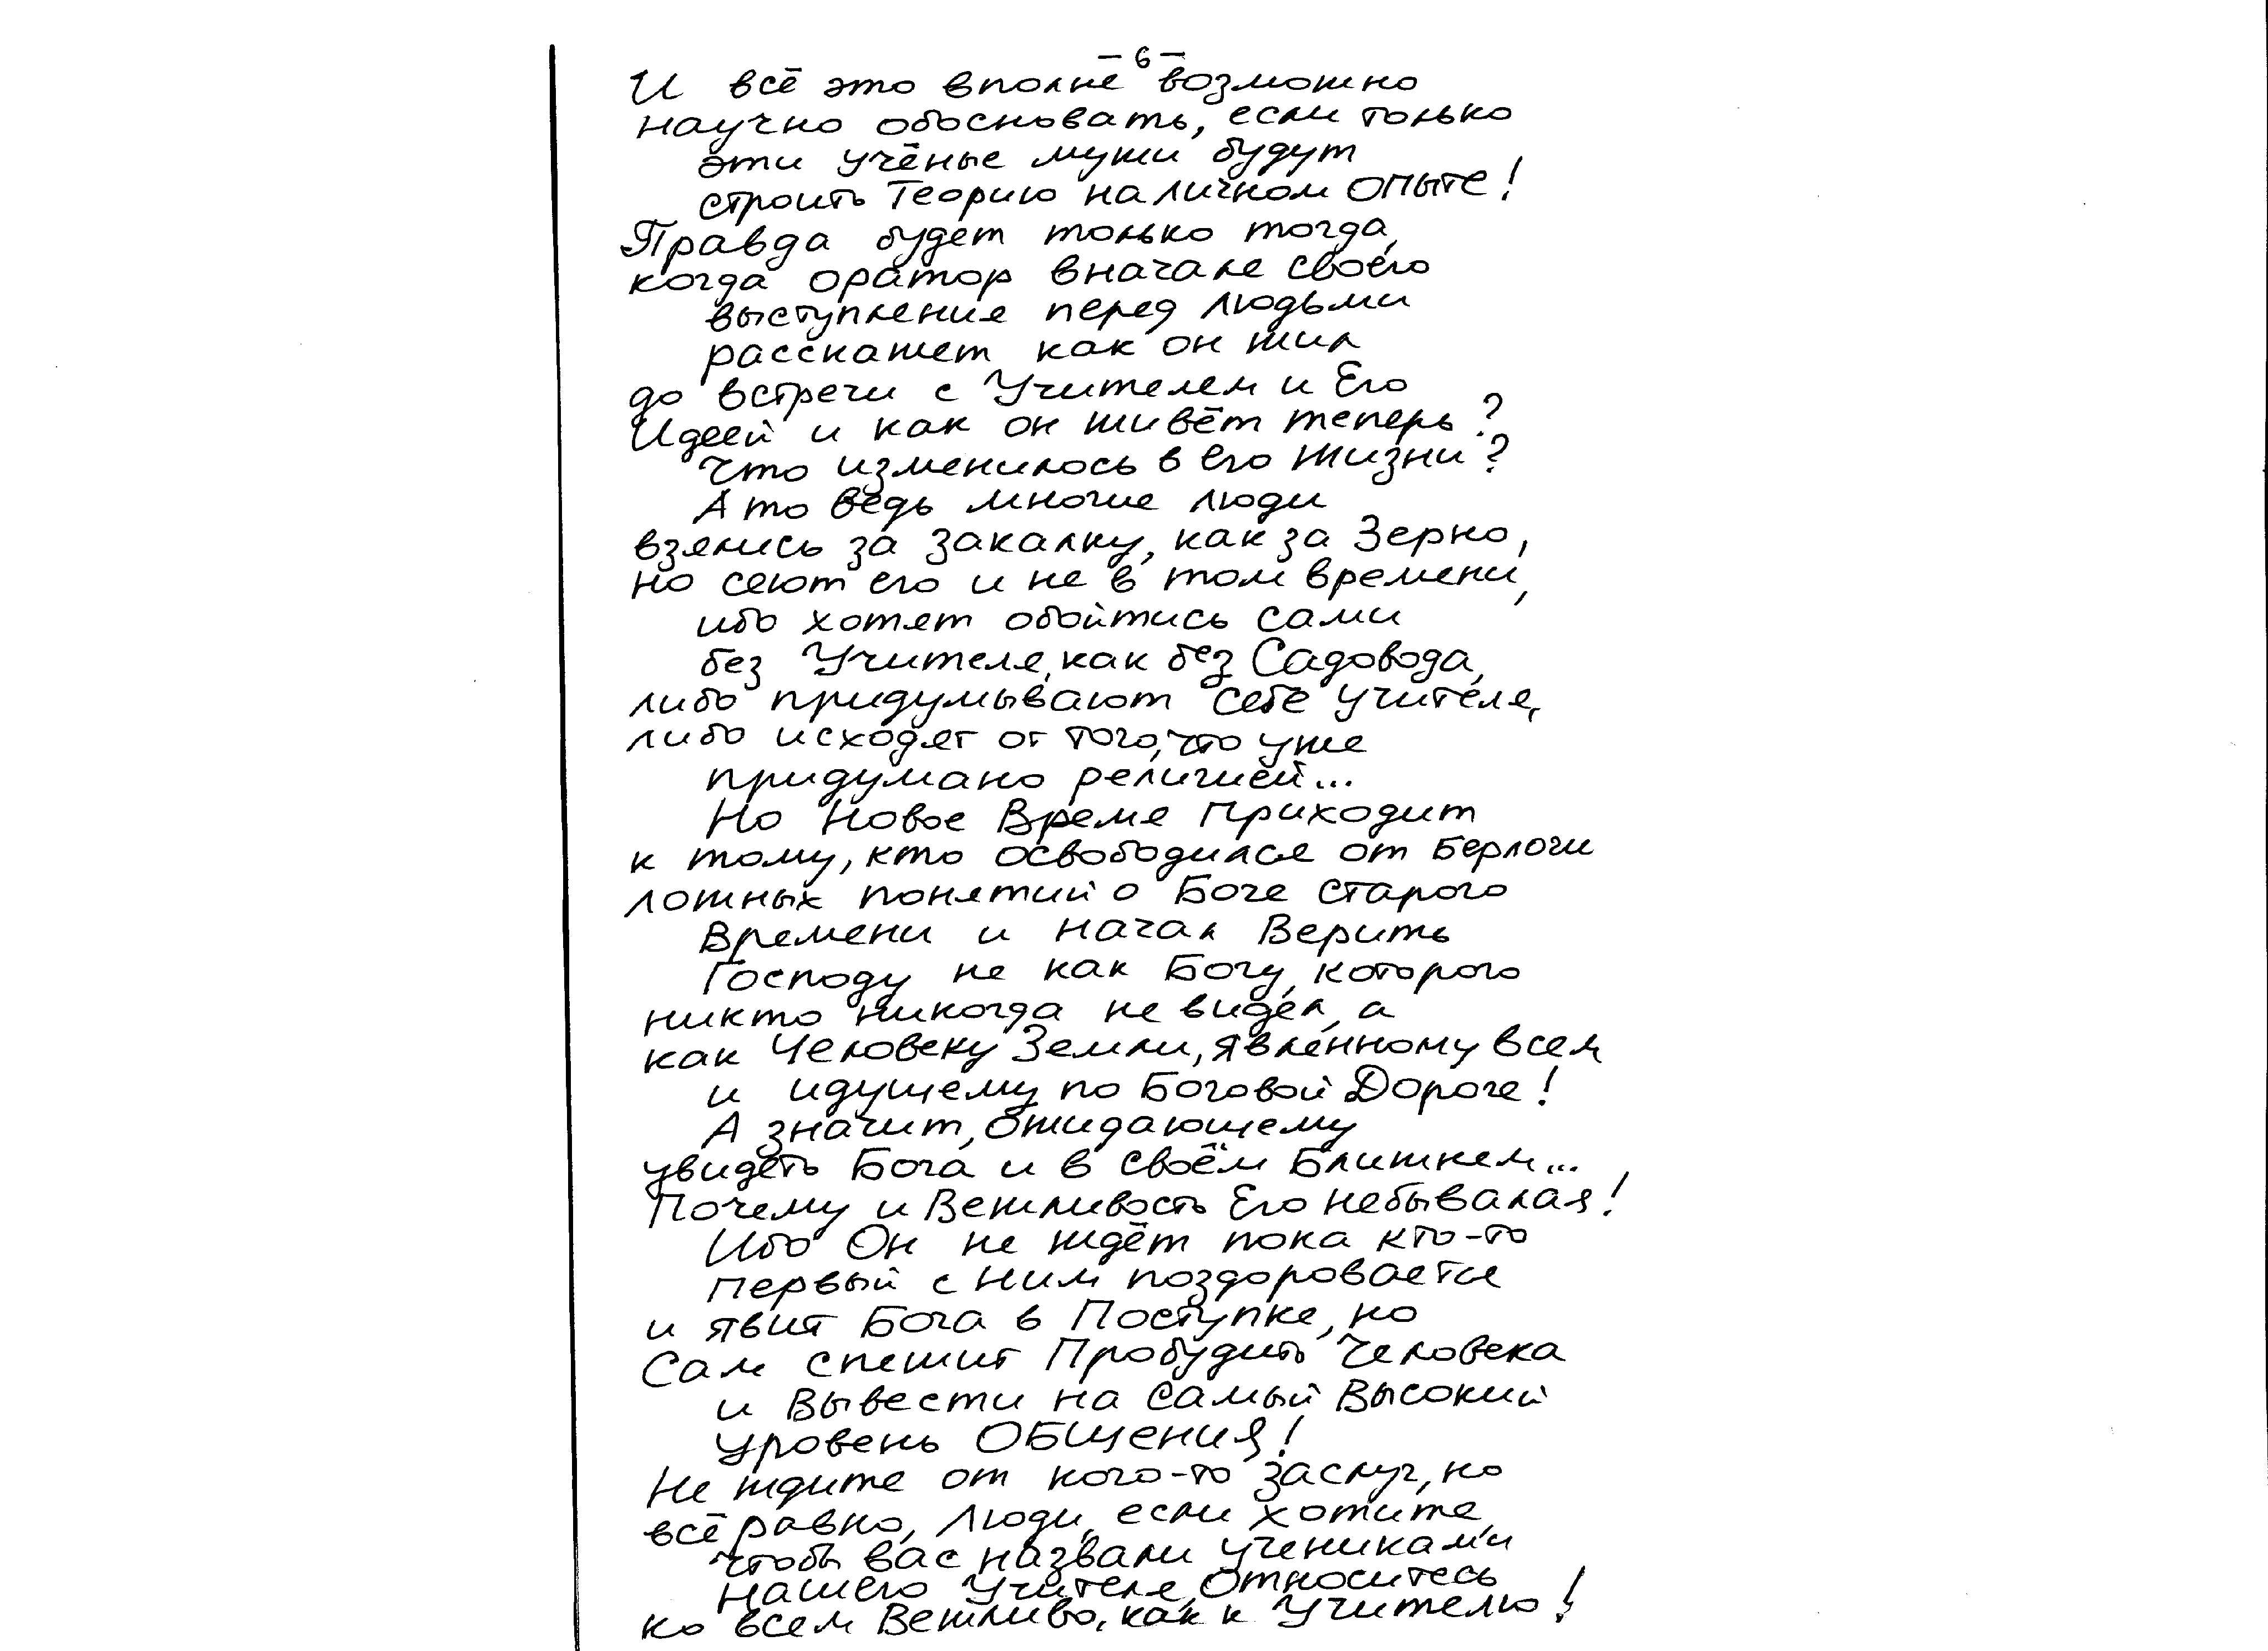 – 6 –
И всё это вполне возможно
научно обосновать, если только
эти учёные мужи будут
строить Теорию на личном опыте!
Правда будет только тогда,
когда оратор вначале своего
выступления перед людьми
расскажет как он жил
до встречи с Учителем и Его
Идеей и как он живёт теперь?
Что изменилось в его Жизни?
А то ведь многие люди
взялись за закалку, как за Зерно,
но сеют его и не в том времени,
ибо хотят обойтись сами
без Учителя, как без Садовода,
либо придумывают себе учителя,
либо исходят от того, что уже
придумано религией...
Но Новое Время Приходит
к тому, кто освободился от Берлоги
ложных понятий о Боге старого
Времени и начал Верить
Господу не как Богу, которого
никто никогда не видел, а
как Человеку Земли, явленному всем
и идущему по Боговой Дороге!
А значит, ожидающему
увидеть Бога и в своём Ближнем...
Почему и Вежливость Его небывалая!
Ибо Он не ждёт пока кто-то
первый с ним поздоровается
и явит Бога в Поступке, но
Сам спешит Пробудить Человека
и Вывести на самый Высокий
уровень ОБЩения!
Не ждите от кого-то заслуг, но
всё равно, люди, если хотите,
чтобы вас назвали учениками
нашего Учителя, Относитесь
ко всем Вежливо, как к Учителю!